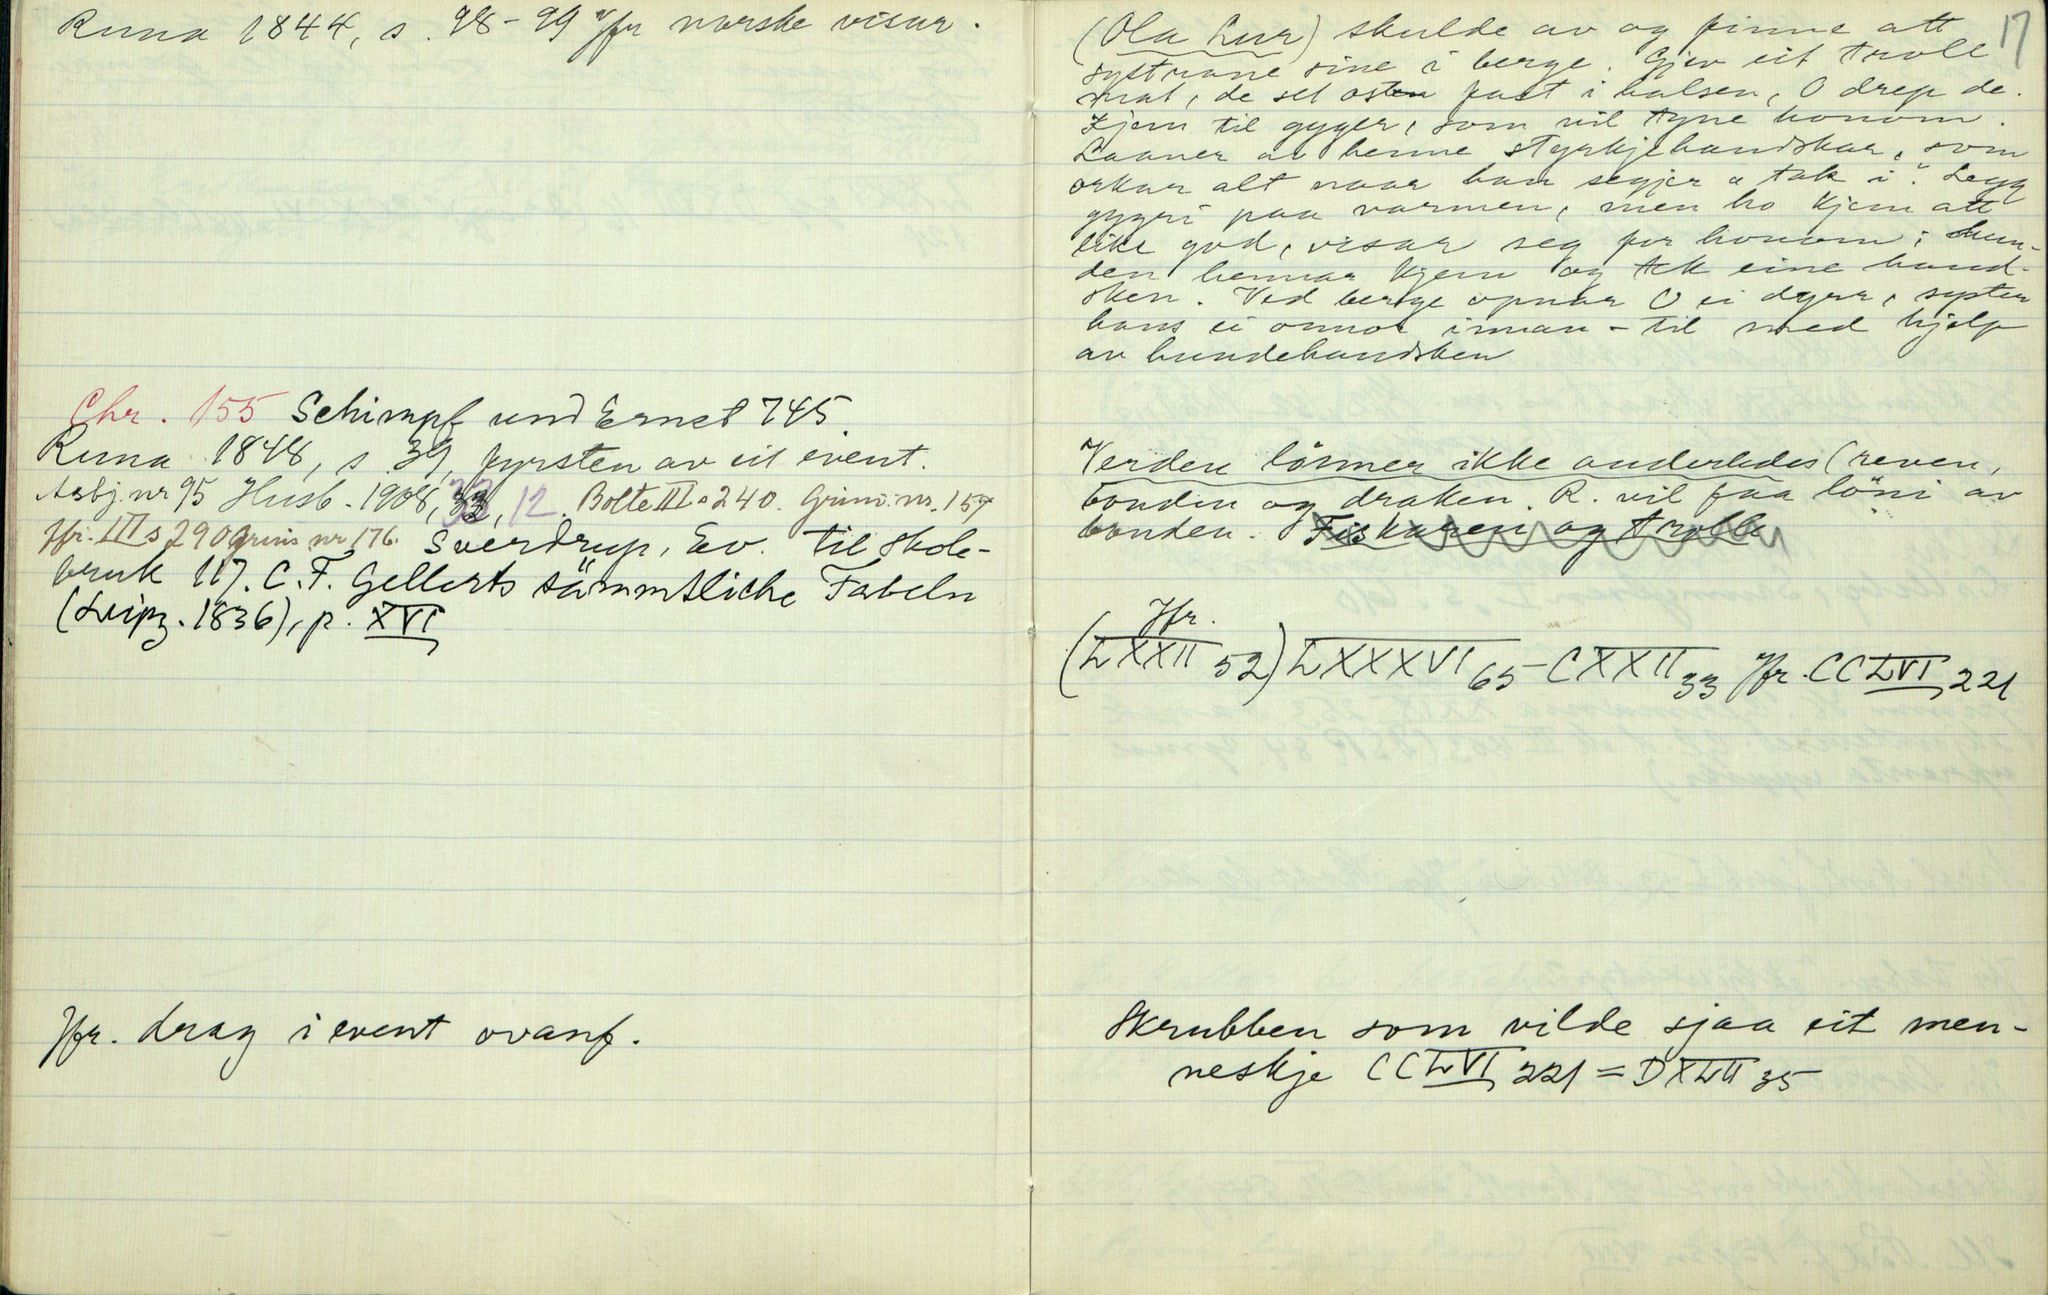 Runa 1844, s. 98-99 Jfr norske visur.
Chr. 155 Schimpf und Ernst 745.
Runa 1848, s 39, fyrsten av eit event.
Asbj. nr 95 Husb. 1908, 33, 12. Bolte III s 240. Grim. nr. 157
Jfr. III s 290 Grim nr 176. Sverdrup, Ev. til skole-
bruk 117. C. F. Gellerts sämmtliche Fabeln
(Leipz. 1836), p. XVI
Jfr. drag i event ovanf.
17
(Ola Lur) skulde av og finne att
systrane sine i berge. Gjev eit troll
mat, de set osten fast i halsen, O drep de.
Kjem til gyger, som vil tyne honom.
Laaner av henne styrkjehandskar, som
orkar alt naar han segjer "tak i". Legg
gygri paa varmen, men ho kjem att
like god, visar seg for honom; hun-
den hennar kjem og tek eine hand-
sken. Ved berge opnar O ei dyrr, syster
hans ei onnor innan-til med hjelp
av hundehandsken
Verden lönner ikke anderledes (reven,
bonden og draken. R. vil faa löni av
bonden. Fiskaren og trolle
Jfr.
(LXXII 52) LXXXVI 65 - CXXII 33 Jfr. CCLVI, 221
Skrubben som vilde sjaa eit men-
neskje CCLVI, 221 = DXLII 35